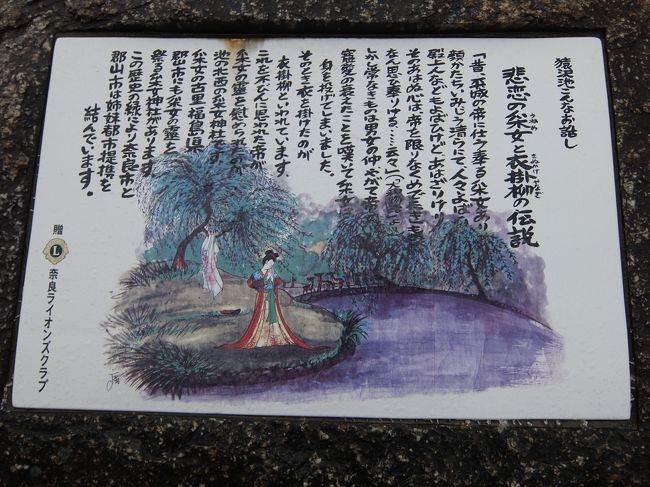 猿沢池こんなお話し
悲恋の采女と衣掛柳の伝説
うねめ
きぬかけやなぎ
「昔、平城の帝に仕う奉る采女あり
顔かたち、いみじう清らにて人々よばひ
殿上人などもよばひけど、あはざりけり
そのあはぬ心は、帝を限りなくめでたき
なん思ひ奉りける…云々」(大和
しかし常なきものは男女の仲、やがて帝の
寵愛の衰えたことを嘆いて采女は
身を投げてしまいました。
そのとき衣を掛けたのが
衣掛柳といわれています。
これをふびんに思われた帝が
采女の霊を慰められたのが
池の北西の采女神社です。
采女の古里福島県
郡山市にも采女の霊を
祭る采女神社があります。
この歴史の縁により奈良市と
郡山市は姉妹都市提携を
結んでいます。
贈 L 奈良ライオンズクラブ